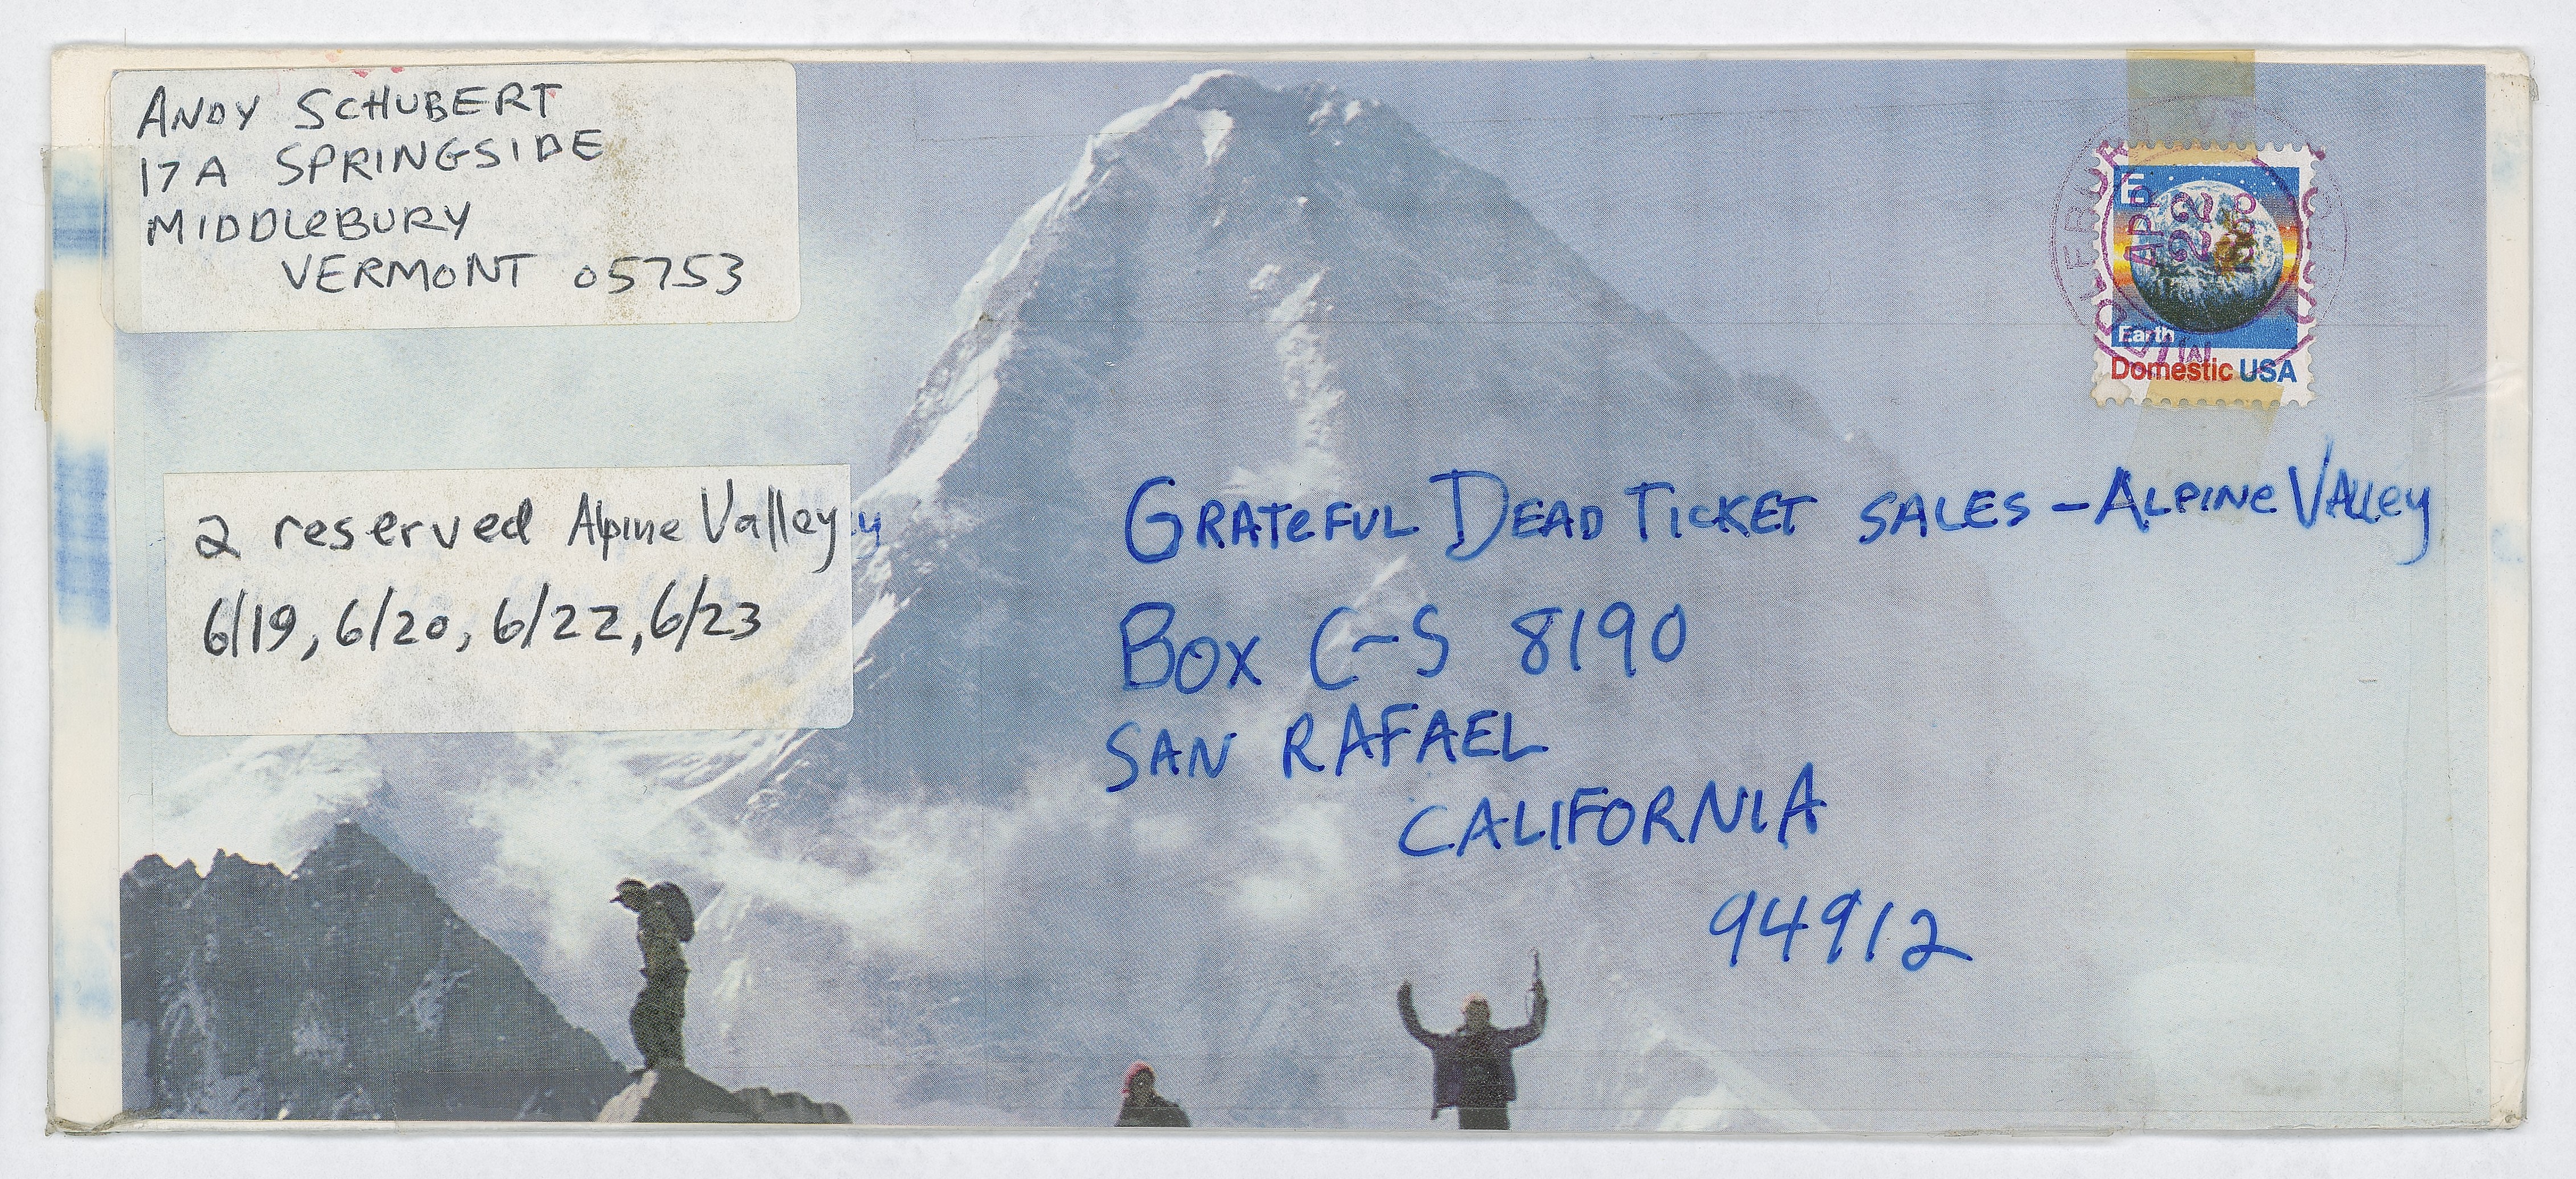 ANDY SCHUBERT
17A SPRINGSIDE
MIDDLeBURY
VERMONT 05753
E
APR
22
Earth
Domestic USA
2 reserved Alpine Valley
6/19, 6/20, 6/22, 6/23
GRATeFUL DEAD TICKET SALES - ALPINe VALLey
BOX C-S 8190
SAN RAFAEL
CALIFORNIA
94912